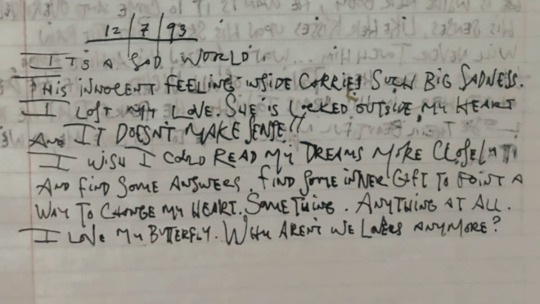 12/7/93
ITS A SAD WORLD
THIS INNOCENT FEELING INSIDE CARRIES SUCH BIG SADNESS.
I LOST MY LOVE. SHE IS LOCKED OUTSIDE MY HEART
AND IT DOESNT MAKE SENSE!!
I WISH I COULD READ MY DREAMS MORE CLOSELY
AND FIND SOME ANSWERS. FIND SOME INNER GIFT TO POINT A
WAY TO CHANGE MY HEART. SOMETHING. ANYTHING AT ALL.
I LOVE MY BUTTERFLY. WHY ARENT WE LOVERS ANYMORE?